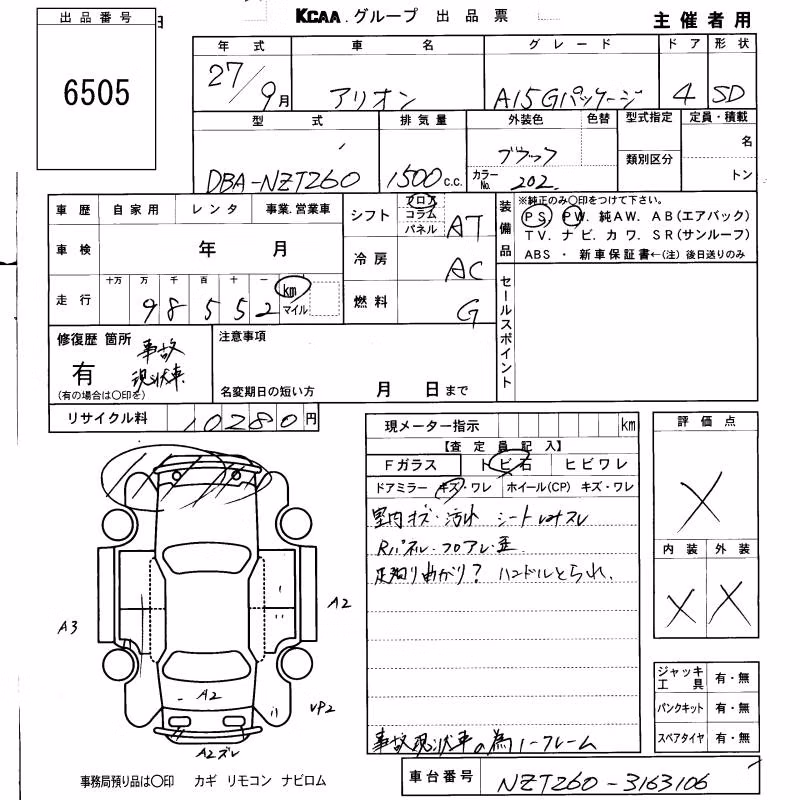 出品番号
6505
日
KCAA.グループ 出品票
主催者用
年式 車名 グレード ドア 形状
27/9月 アリオン A15Gパッケージ 4 SD
型式 排気量 外装色 色替 型式指定 定員・積載
DBA-NZT260 1500c.c. ブラック
カラーNo. 202
類別区分
名
トン
車歴 自家用 レンタ 事業.営業車
車検 年 月
走行 十万 万 千 百 十 一
98552 km マイル
シフト フロア コラム パネル AT
冷房 AC
燃料 G
装備品
※純正のみ〇印をつけて下さい。
PS. PW. 純AW. AB(エアバック)
TV. ナビ. カワ. SR(サンルーフ)
ABS ・ 新車保証書←(注) 後日送りのみ
セールスポイント
修復歴 箇所
有
(有の場合は〇印を)
事故
現状車
注意事項
名変期日の短い方 月 日まで
リサイクル料 10280円
現メーター指示 km
【査定員記入】
Fガラス トビ石 ヒビワレ
ドアミラー キズ・ワレ ホイール(CP) キズ・ワレ
室内キズ・汚れ シート
Rパネル・フロアレ歪
足廻り曲がり? ハンドルとられ.
事故現状車の為ノークレーム
評価点
X
内装 外装
X X
A3
A2
A2
VP2
A2ズレ
ジャッキ 工具 有・無
パンクキット 有・無
スペアタイヤ 有・無
事務局預り品は〇印 カギ リモコン ナビロム
車台番号 NZT260-3163106